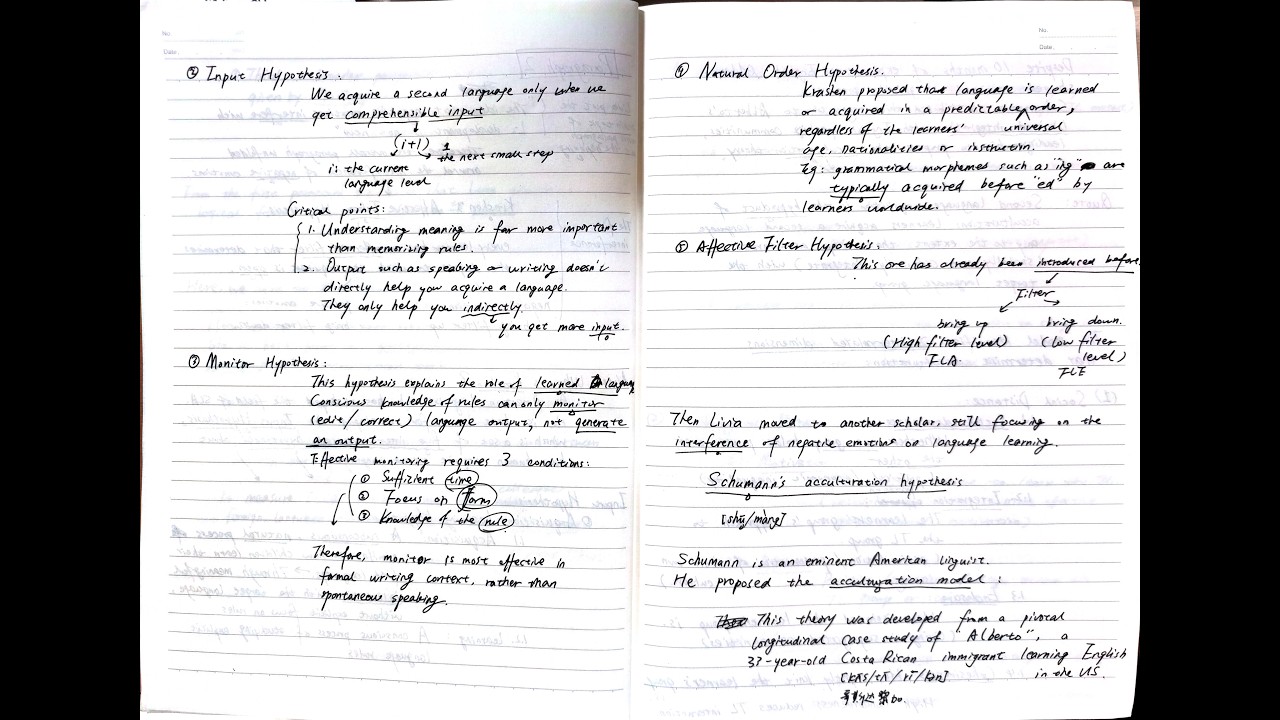 No.
Date.
② Input Hypothesis:
We acquire a second language only when we
get comprehensible input
(i+1)
1
the next small step
i: the current
language level
Critical points:
1. Understanding meaning is far more important
than memorizing rules.
2. Output such as speaking or writing doesn't
directly help you acquire a language.
They only help you indirectly.
you get more input.
③ Monitor Hypothesis:
This hypothesis explains the role of learned language
Conscious knowledge of rules can only monitor
(edit/correct) language output, not generate
an output.
Effective monitoring requires 3 conditions:
① Sufficient time
② Focus on form
③ Knowledge of the rule
Therefore, monitor is most effective in
formal writing context, rather than
spontaneous speaking.
No.
Date.
④ Natural Order Hypothesis.
Krashen proposed that language is learned
or acquired in a predictable order,
universal
regardless of the learners'
age, nationalities or instruction.
Eg: grammatical morphemes such as "ing" are
typically acquired before "ed" by
learners worldwide.
⑤ Affective Filter Hypothesis:
This one has already been introduced before.
Filter
bring up
(High filter level)
FLA.
bring down.
(low filter
level)
FLE
Then Livia moved to another scholar, still focusing on the
interference of negative emotions on language learning.
Schumann's acculturation hypothesis
Schumann is an eminent American linguist.
He proposed the acculturation model:
This theory was developed from a pivotal
longitudinal case study of "Alberto", a
33-year-old Costa Rican immigrant learning English
in the US.